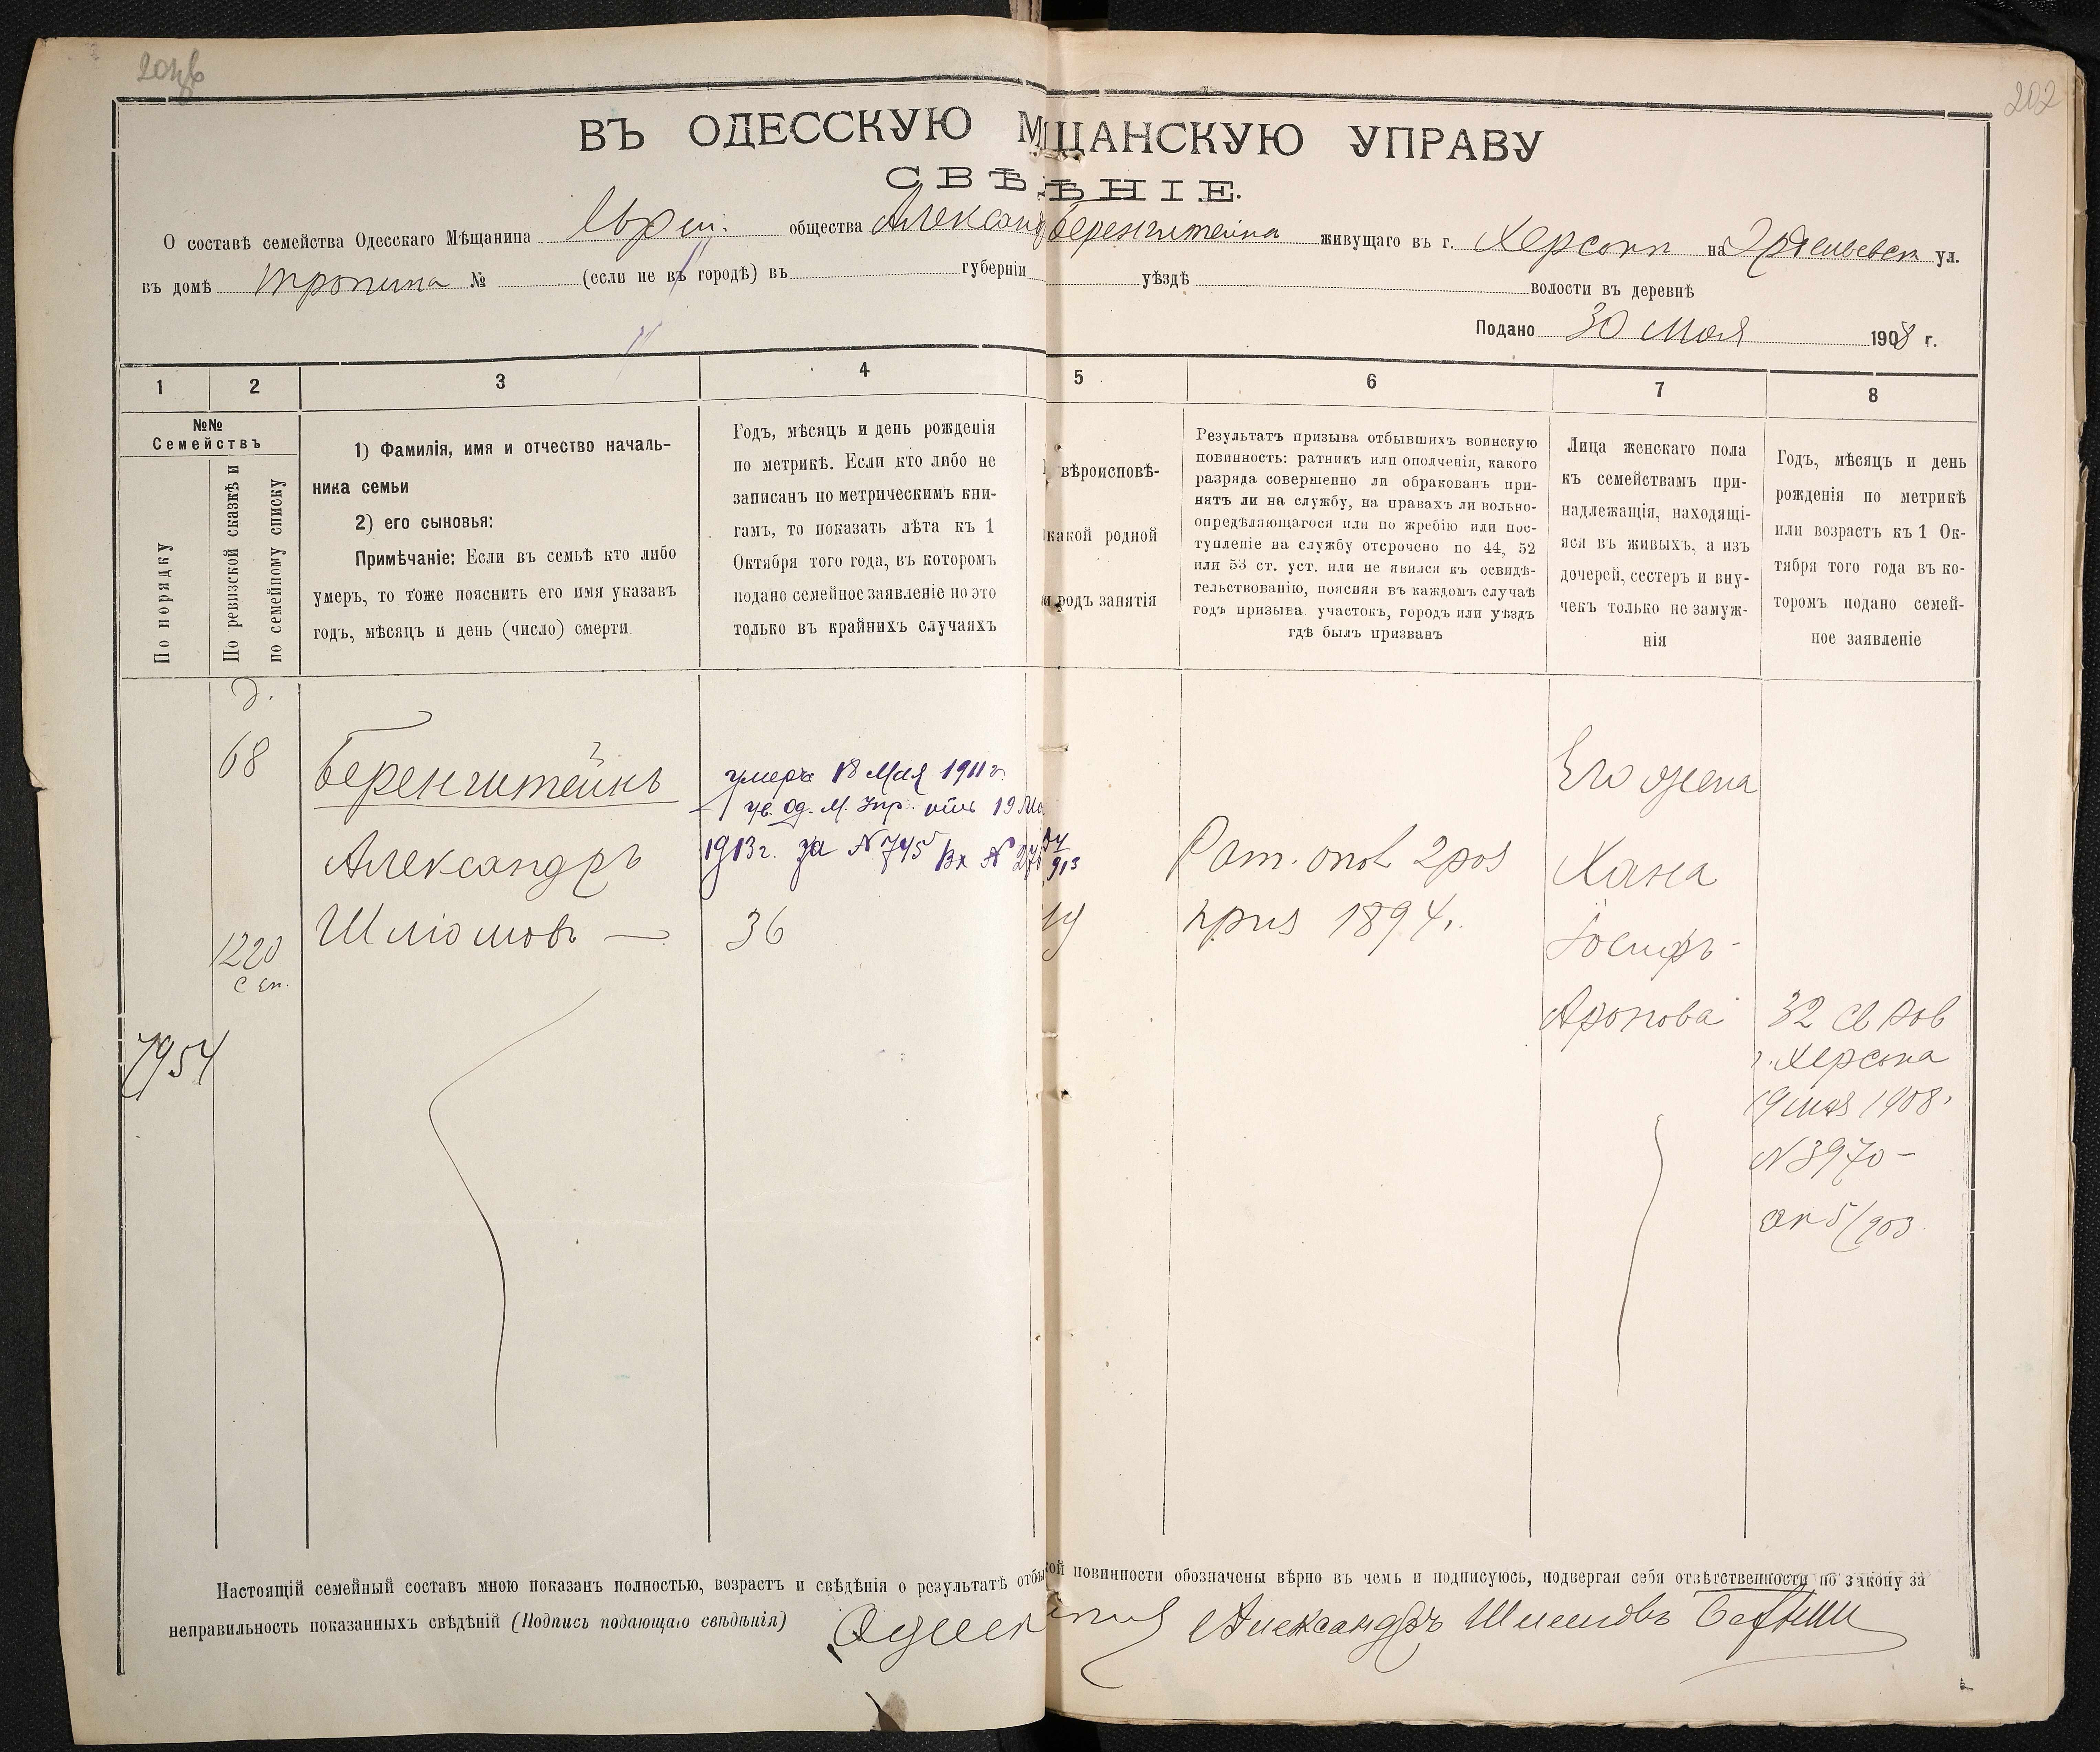 202
ВЪ ОДЕССКУЮ М ЩАНСКУЮ УПРАВУ
СВѢ ѢНІЕ.
О составѣ семейства Одесскаго Мѣщанина общества Александ Беренштейна живущаго въ г. Херсонѣ на ул.
въ домѣ Тропина № (если не въ городѣ) въ губерніи уѣздѣ волости въ деревнѣ
Подано 30 Мая 1908 г.
1 2 3 4 5 6 7 8
№№
Семействъ
По порядку
По ревизской сказкѣ и
по семейному списку
1) Фамилія, имя и отчество началь-
ника семьи
2) его сыновья:
Примѣчаніе: Если въ семьѣ кто либо
умеръ, то тоже пояснить его имя указавъ
годъ, мѣсяцъ и день (число) смерти
Годъ, мѣсяцъ и день рожденія
по метрикѣ. Если кто либо не
записанъ по метрическимъ кни-
гамъ, то показать лѣта къ 1
Октября того года, въ которомъ
подано семейное заявленіе но это
только въ крайнихъ случаяхъ
вѣроисповѣ-
какой родной
и родъ занятія
Результатъ призыва отбывшихъ воинскую
повинность: ратникъ или ополченія, какого
разряда совершенно ли обракованъ при-
нятъ ли на службу, на правахъ ли вольно-
опредѣляющагося или по жребію или пос-
тупленіе на службу отсрочено по 44, 52
или 53 ст. уст. или не явился къ освидѣ-
тельствованію, поясняя въ каждомъ случаѣ
годъ призыва участокъ, городъ или уѣздъ
гдѣ былъ призванъ
Лица женскаго пола
къ семействамъ при-
надлежащія, находящі-
яся въ живыхъ, а изъ
дочерей, сестеръ и вну-
чекъ только не замуж-
нія
Годъ, мѣсяцъ и день
рожденія по метрикѣ
или возрастъ къ 1 Ок-
тября того года въ ко-
торомъ подано семей-
ное заявленіе
68
1220
с сп.
7954
Беренштейнъ
Александръ
Шліомовъ —
умеръ 18 Мая 1911 г.
ув. Од. М. Упр. отъ 19
1913 г. за № 745 Вх №
36
Рат. опол 2 раз
приз 1894 г.
Его жена
Хана
Іосифъ-
Аронова
32
г. Херсона
19 мая 1908.
№ 3970 —
Настоящій семейный составъ мною показанъ полностью, возрастъ и свѣдѣнія о результатѣ отбы ой повинности обозначены вѣрно въ чемъ и подписуюсь, подвергая себя отвѣтственности по закону за
неправильность показанныхъ свѣдѣній (Подпись подающаго свѣдѣнія) Александръ Шлеомовъ